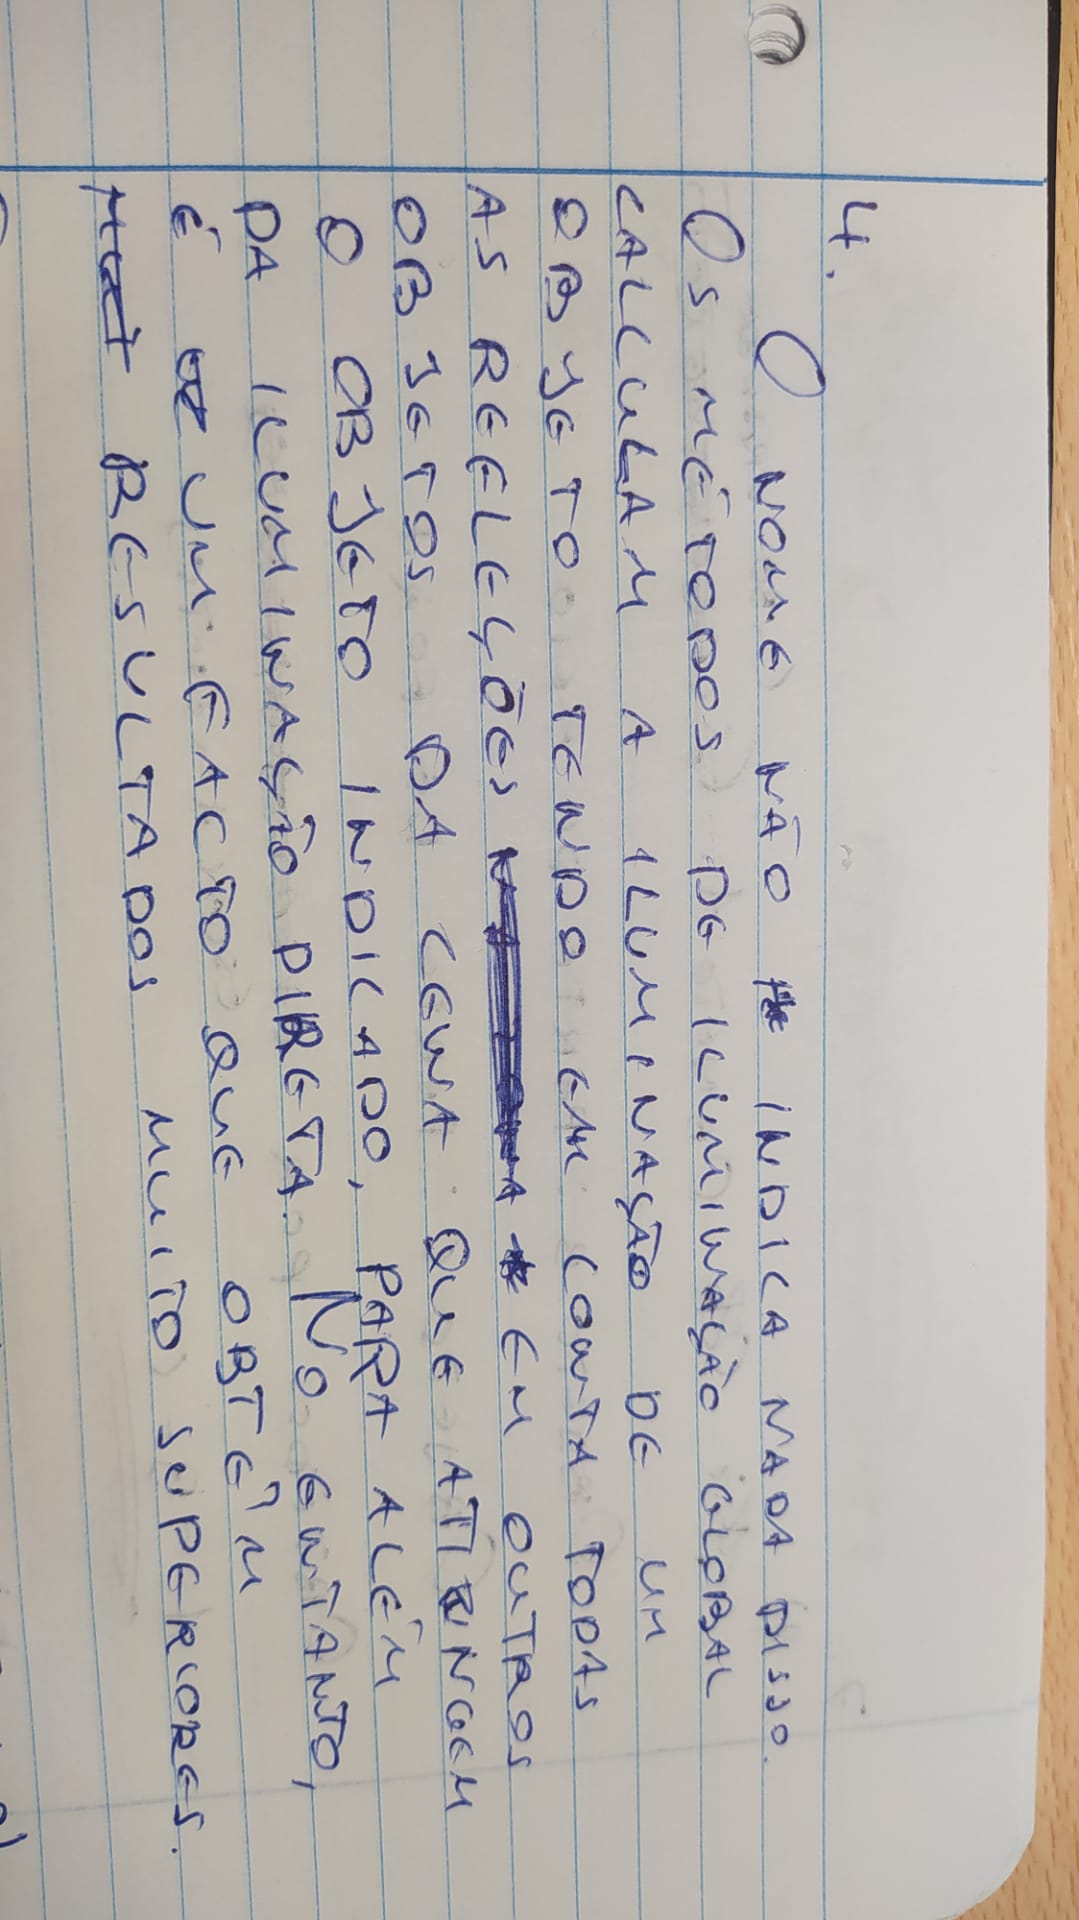 4.
O NOME NÃO INDICA NADA DISSO.
OS MÉTODOS DE ILUMINAÇÃO GLOBAL
CALCULAM A ILUMINAÇÃO DE UM
OBJETO TENDO EM CONTA TODAS
AS REFLEÇÕES EM OUTROS
OBJETOS DA CENA QUE ATINGEM
O OBJETO INDICADO, PARA ALÉM
DA ILUMINAÇÃO DIRETA. NO ENTANTO,
É UM FACTO QUE OBTÊM
RESULTADOS MUITO SUPERIORES.